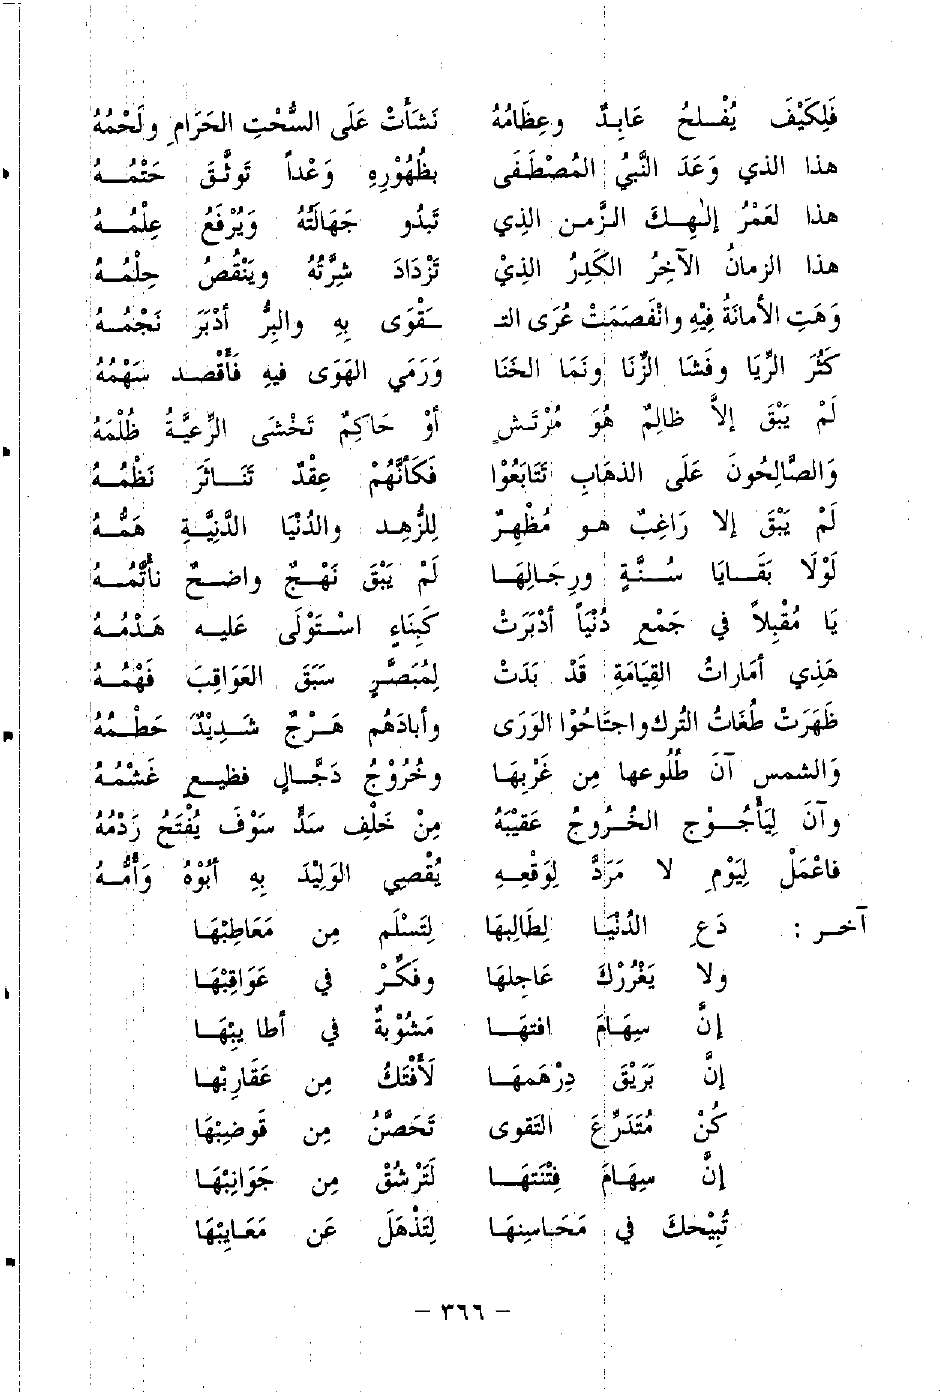 فَلِكَيْفَ يُفْـلحُ عَابِـدٌ وعِظَامُهُ نَشَأتْ عَلَى السُّحْتِ الحَرَامِ ولَحْمُهُ
هذا الذي وَعَدَ النَّبيُّ المُصْطَفَى بظُهُوْرِهِ وَعْداً تَوثَّـقَ حَتْمُـــهُ
هذا لعَمْرُ إلـٰهِـكَ الـزَّمـن الذِي تَبدُو جَهَالَتُهُ وَيُرْفَعُ عِلْمُـــهُ
هذا الزمانُ الآخِرُ الكَدِرُ الذِيْ تَزْدَادَ شِرَّتُهُ ويَنْقُصُ حِلْمُـــهُ
وَهَتِ الأمانَةُ فِيْهِ وانْفَصَمَتْ عُرَى التـ ـقْوَى بِهِ والبِرُّ أدْبَرَ نَجْمُـهُ
كَثُرَ الرِّيَا وفَشَا الزِّنَا ونَمَا الخَنَا وَرَمَي الهَوَى فيهِ فَأَقْصـد سَهْمُهُ
لَمْ يَبْقَ إلاَّ ظالِمٌ هُوَ مُرْتَشٍ أوْ حَاكِمٌ تَخْشَى الرَّعِيَّـةُ ظُلْمَهُ
وَالصَّالِحُونَ عَلَى الذهَابِ تَتَابَعُوْا فَكَأنَّهُمْ عِقْدٌ تَنَـــاثَرَ نَظْمُـــهُ
لَمْ يَبْقَ إلا رَاغِبٌ هـو مُظْهِرٌ لِلزُّهِـد والدُنْيَا الدَّنِيَّـــةِ هَمُّـــهُ
لَوْلَا بَقَـــايَا سُـــنَّةٍ ورِجَـالِهَـا لَمْ يَبْقَ نَهْـجٌ واضـحٌ نأتُمُّـــهُ
يَا مُقْبِلاً في جَمْعِ دُنْيَاً أدْبَرَتْ كَبِنَاءٍ اسْـتَوْلَى عَليـه هَـدْمُـهُ
هَذِي أمَاراتُ القِيَامَةِ قَدْ بَدَتْ لِمُبَصَّرٍ سَبَقَ العَوَاقِبَ فَهْمُـهُ
ظَهَرَتْ طُغَاتُ التُركِ واجتَاحُوْا الوَرَى وأبادَهُم هَـرْجٌ شَـدِيْدٌ حَطـمُهُ
وَالشمس آنَ طُلُوعها مِن غَرْبِهَا وخُرُوْجُ دَجَّـالٍ فظيـعٍ غَشْمُـهُ
وآنَ لِيَأْجُـوْج الخُـرُوجُ عَقيْبَهُ مِنْ خَلْفِ سَدٍّ سَوْفَ يُفْتَحُ رَدْمُهُ
فاعْمَلْ لِيَوْمٍ لا مَرَدَّ لِوَقْعِـهِ يُقْصِي الوَلِيْدَ بِهِ أبُوْهُ وَأُمُّــهُ
آخـر : دَعِ الدُنْيَـا لِطَالِبهَا لِتَسْلَم مِن مَعَاطِبْهَـا
ولا يَغْرُرْكَ عَاجِلهَا وفَكِّـرْ في عَوَاقِبْهَـا
إنَّ سِهَـامَ افتهَـــا مَشُوْبةٌ في أطايِبْهَـا
إنَّ بَرَيْقَ دِرْهَمهَـا لَأَفْتَكُ مِن عَقَارِبْهـا
كُنْ مُتَدَرِّعَ التَقوى تَحَصَّنُ مِن قَوضِبْهَا
إنَّ سِهَـامَ فِتْنَتهَـــا لَتَرْشُقْ مِن جَوَانِبْهَا
تُبِيْحكَ في مَحَاسِنهَـا لِتَذْهَلَ عَن مَعَايِبْهَا
– ٣٦٦ –